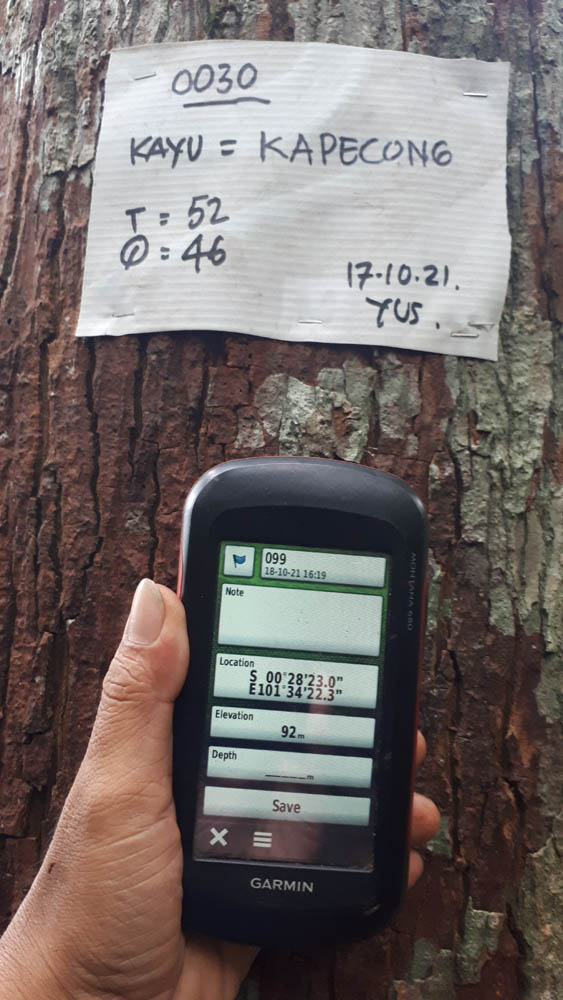 0030
KAYU = KAPECONG
T = 52
Ø = 46
17.10.21.
YUS.
MONTANA 680
099
18-10-21 16:19
Note
Location
S 00°28'23.0"
E101°34'22.3"
Elevation
92m
Depth
_____m
Save
GARMIN